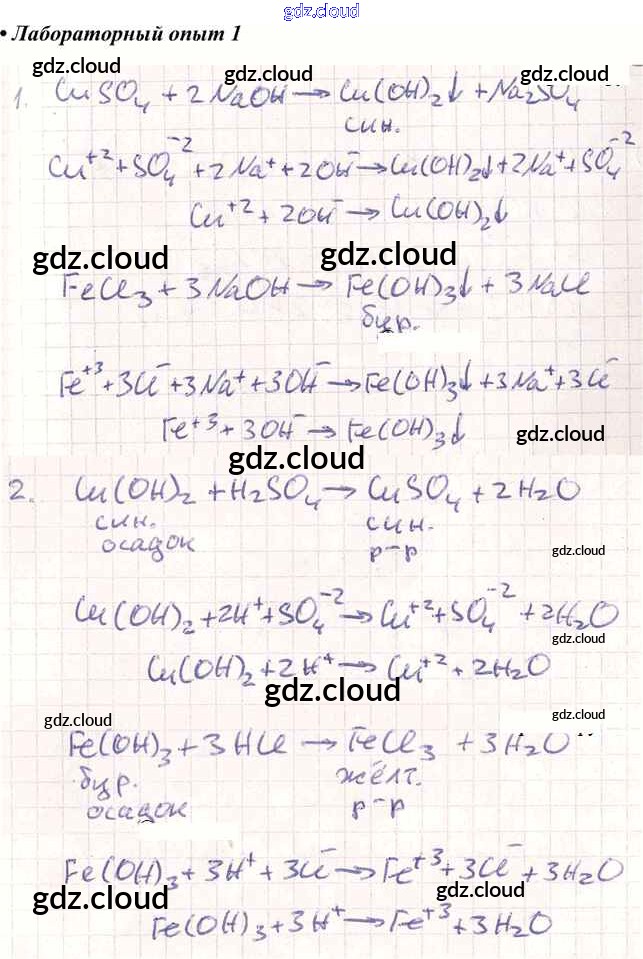 gdz.cloud
• Лабораторный опыт 1
gdz.cloud gdz.cloud gdz.cloud
1. CuSO₄ + 2NaOH → Cu(OH)₂↓ + Na₂SO₄
син.
Cu⁺² + SO₄⁻² + 2Na⁺ + 2OH⁻ → Cu(OH)₂↓ + 2Na⁺ + SO₄⁻²
Cu⁺² + 2OH⁻ → Cu(OH)₂↓
gdz.cloud gdz.cloud
FeCl₃ + 3NaOH → Fe(OH)₃↓ + 3NaCl
бур.
Fe⁺³ + 3Cl⁻ + 3Na⁺ + 3OH⁻ → Fe(OH)₃↓ + 3Na⁺ + 3Cl⁻
Fe⁺³ + 3OH⁻ → Fe(OH)₃↓
gdz.cloud
gdz.cloud
2. Cu(OH)₂ + H₂SO₄ → CuSO₄ + 2H₂O
син. син.
осадок р-р
gdz.cloud
Cu(OH)₂ + 2H⁺ + SO₄⁻² → Cu⁺² + SO₄⁻² + 2H₂O
gdz.cloud
Cu(OH)₂ + 2H⁺ → Cu⁺² + 2H₂O
gdz.cloud
gdz.cloud gdz.cloud
Fe(OH)₃ + 3HCl → FeCl₃ + 3H₂O
бур. жёлт.
осадок р-р
Fe(OH)₃ + 3H⁺ + 3Cl⁻ → Fe⁺³ + 3Cl⁻ + 3H₂O
gdz.cloud gdz.cloud
Fe(OH)₃ + 3H⁺ → Fe⁺³ + 3H₂O